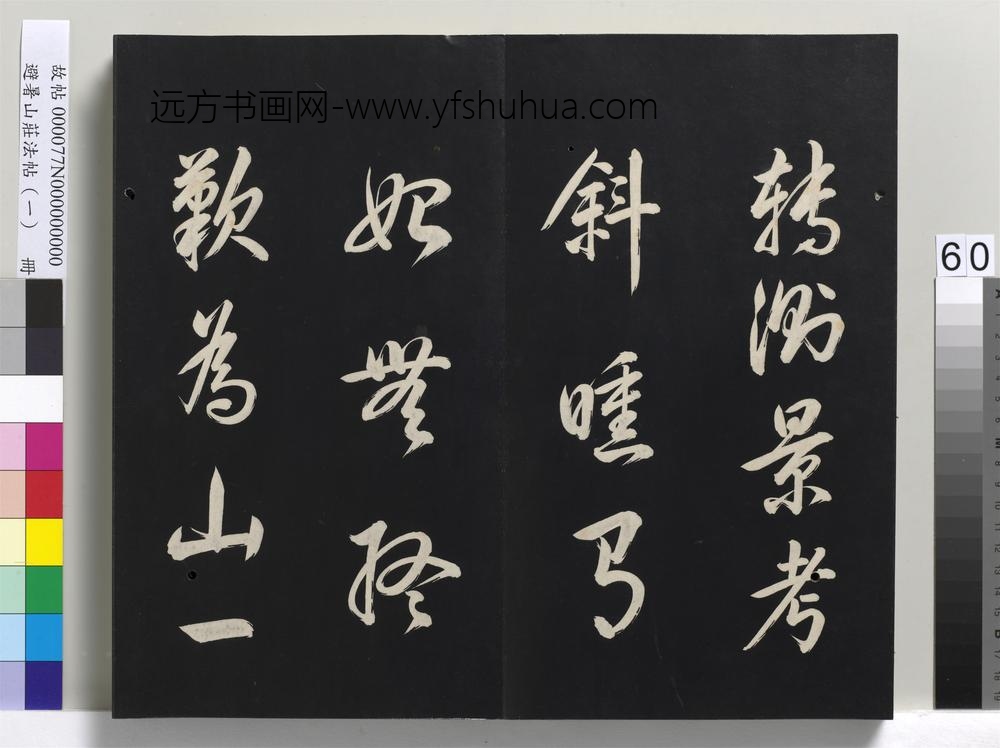 轉測景考
斜曛
始無終
歎為山一
远方书画网-www.yfshuhua.com
故帖 000077N000000000
避暑山莊法帖（一） 冊
60